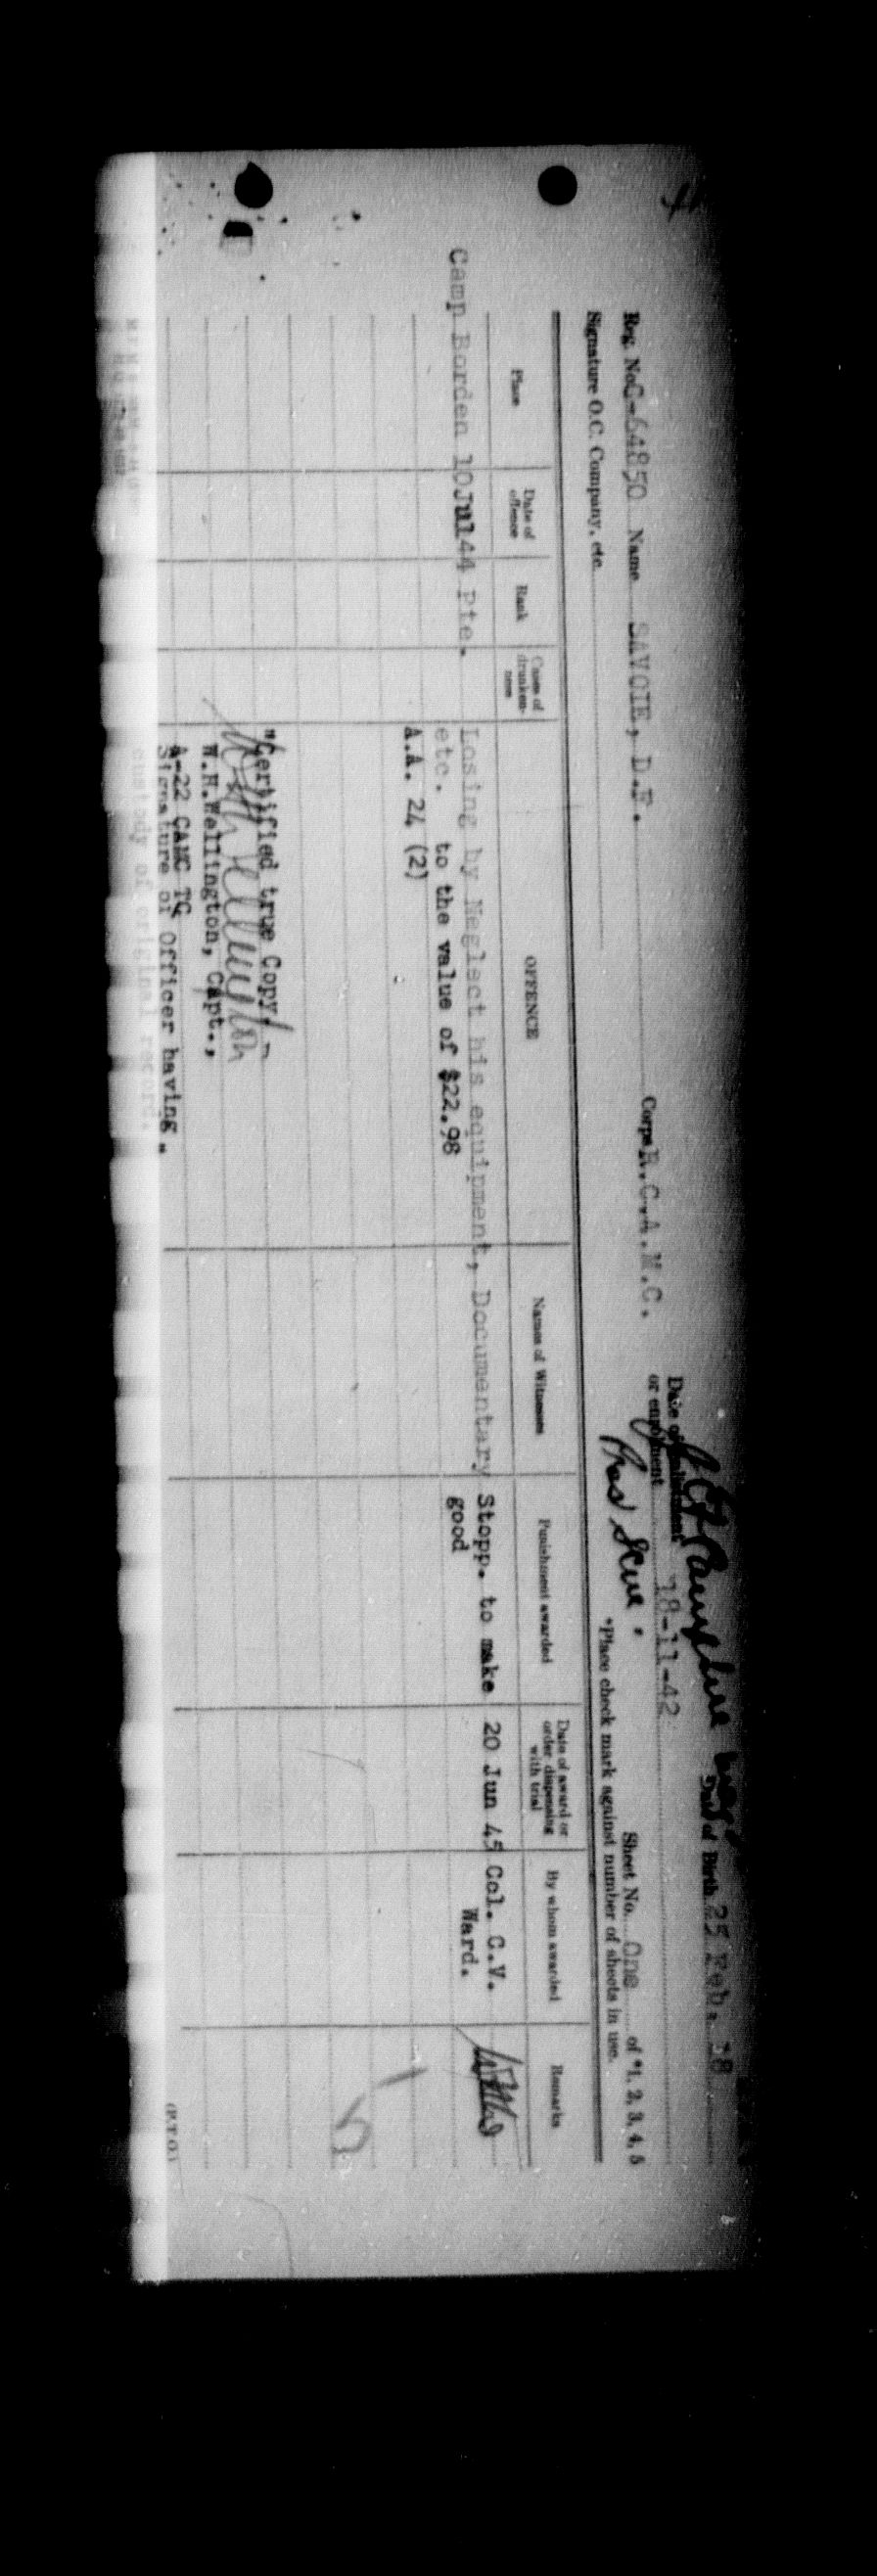 Date of Birth 25 Feb. 18
Reg. No. C-64850 Name SAVOIE, D.F. Corps R.C.A.M.C. Date of enlistment or enrolment 18-11-42
Sheet No. One of *1, 2, 3, 4, 5
Signature O.C. Company, etc.
*Place check mark against number of sheets in use.
Place Date of offence Rank Cases of drunken-ness OFFENCE Names of Witnesses Punishment awarded Date of award or order dispensing with trial By whom awarded Remarks
Camp Borden 10Jul44 Pte. Losing by Neglect his equipment, Documentary Stopp. to make 20 Jun 45 Col. C.V.
etc. to the value of $22.98 good Ward.
A.A. 24 (2)
"Certified true Copy."
W.H.Wellington, Capt.,
A-22 CAMC TC
Signature of Officer having
custody of original record.
(P.T.O.)